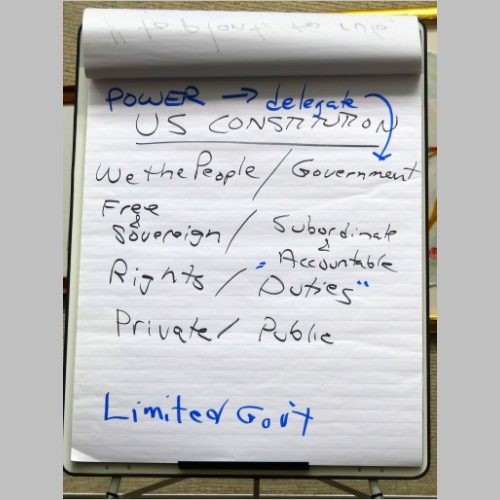 POWER → delegate
US CONSTITUTION
We the People / Government
Free
& Sovereign / Subordinate
& Accountable
Rights / "Duties"
Private / Public
Limited Gov't